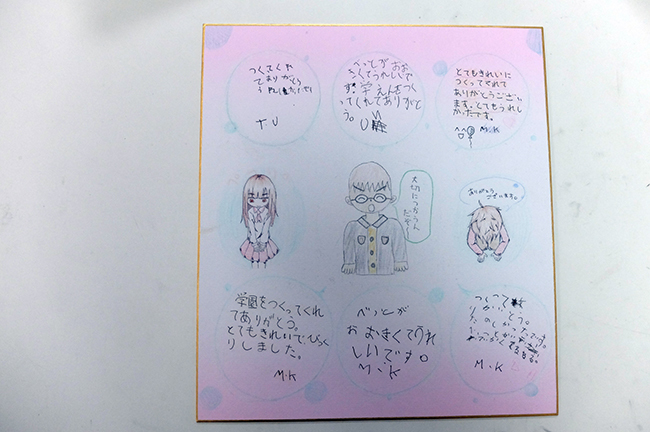 つくてくや
てありがくう
うれしかったです
T U
べっとがおお
きくてうれしいで
す。学えんをつく
ってくれてありがと
う。
U
とてもきれいに
つくってくれて
ありがとうござい
ます。とてもうれし
かったです。
M.K
大切につかうん
だぞ〜
ありがとう
ございます。
学園をつくってくれ
てありがとう。
とてもきれいで、びっく
りしました。
M.K
べっとが
おおきくてうれ
しいです。
M.K
M.K